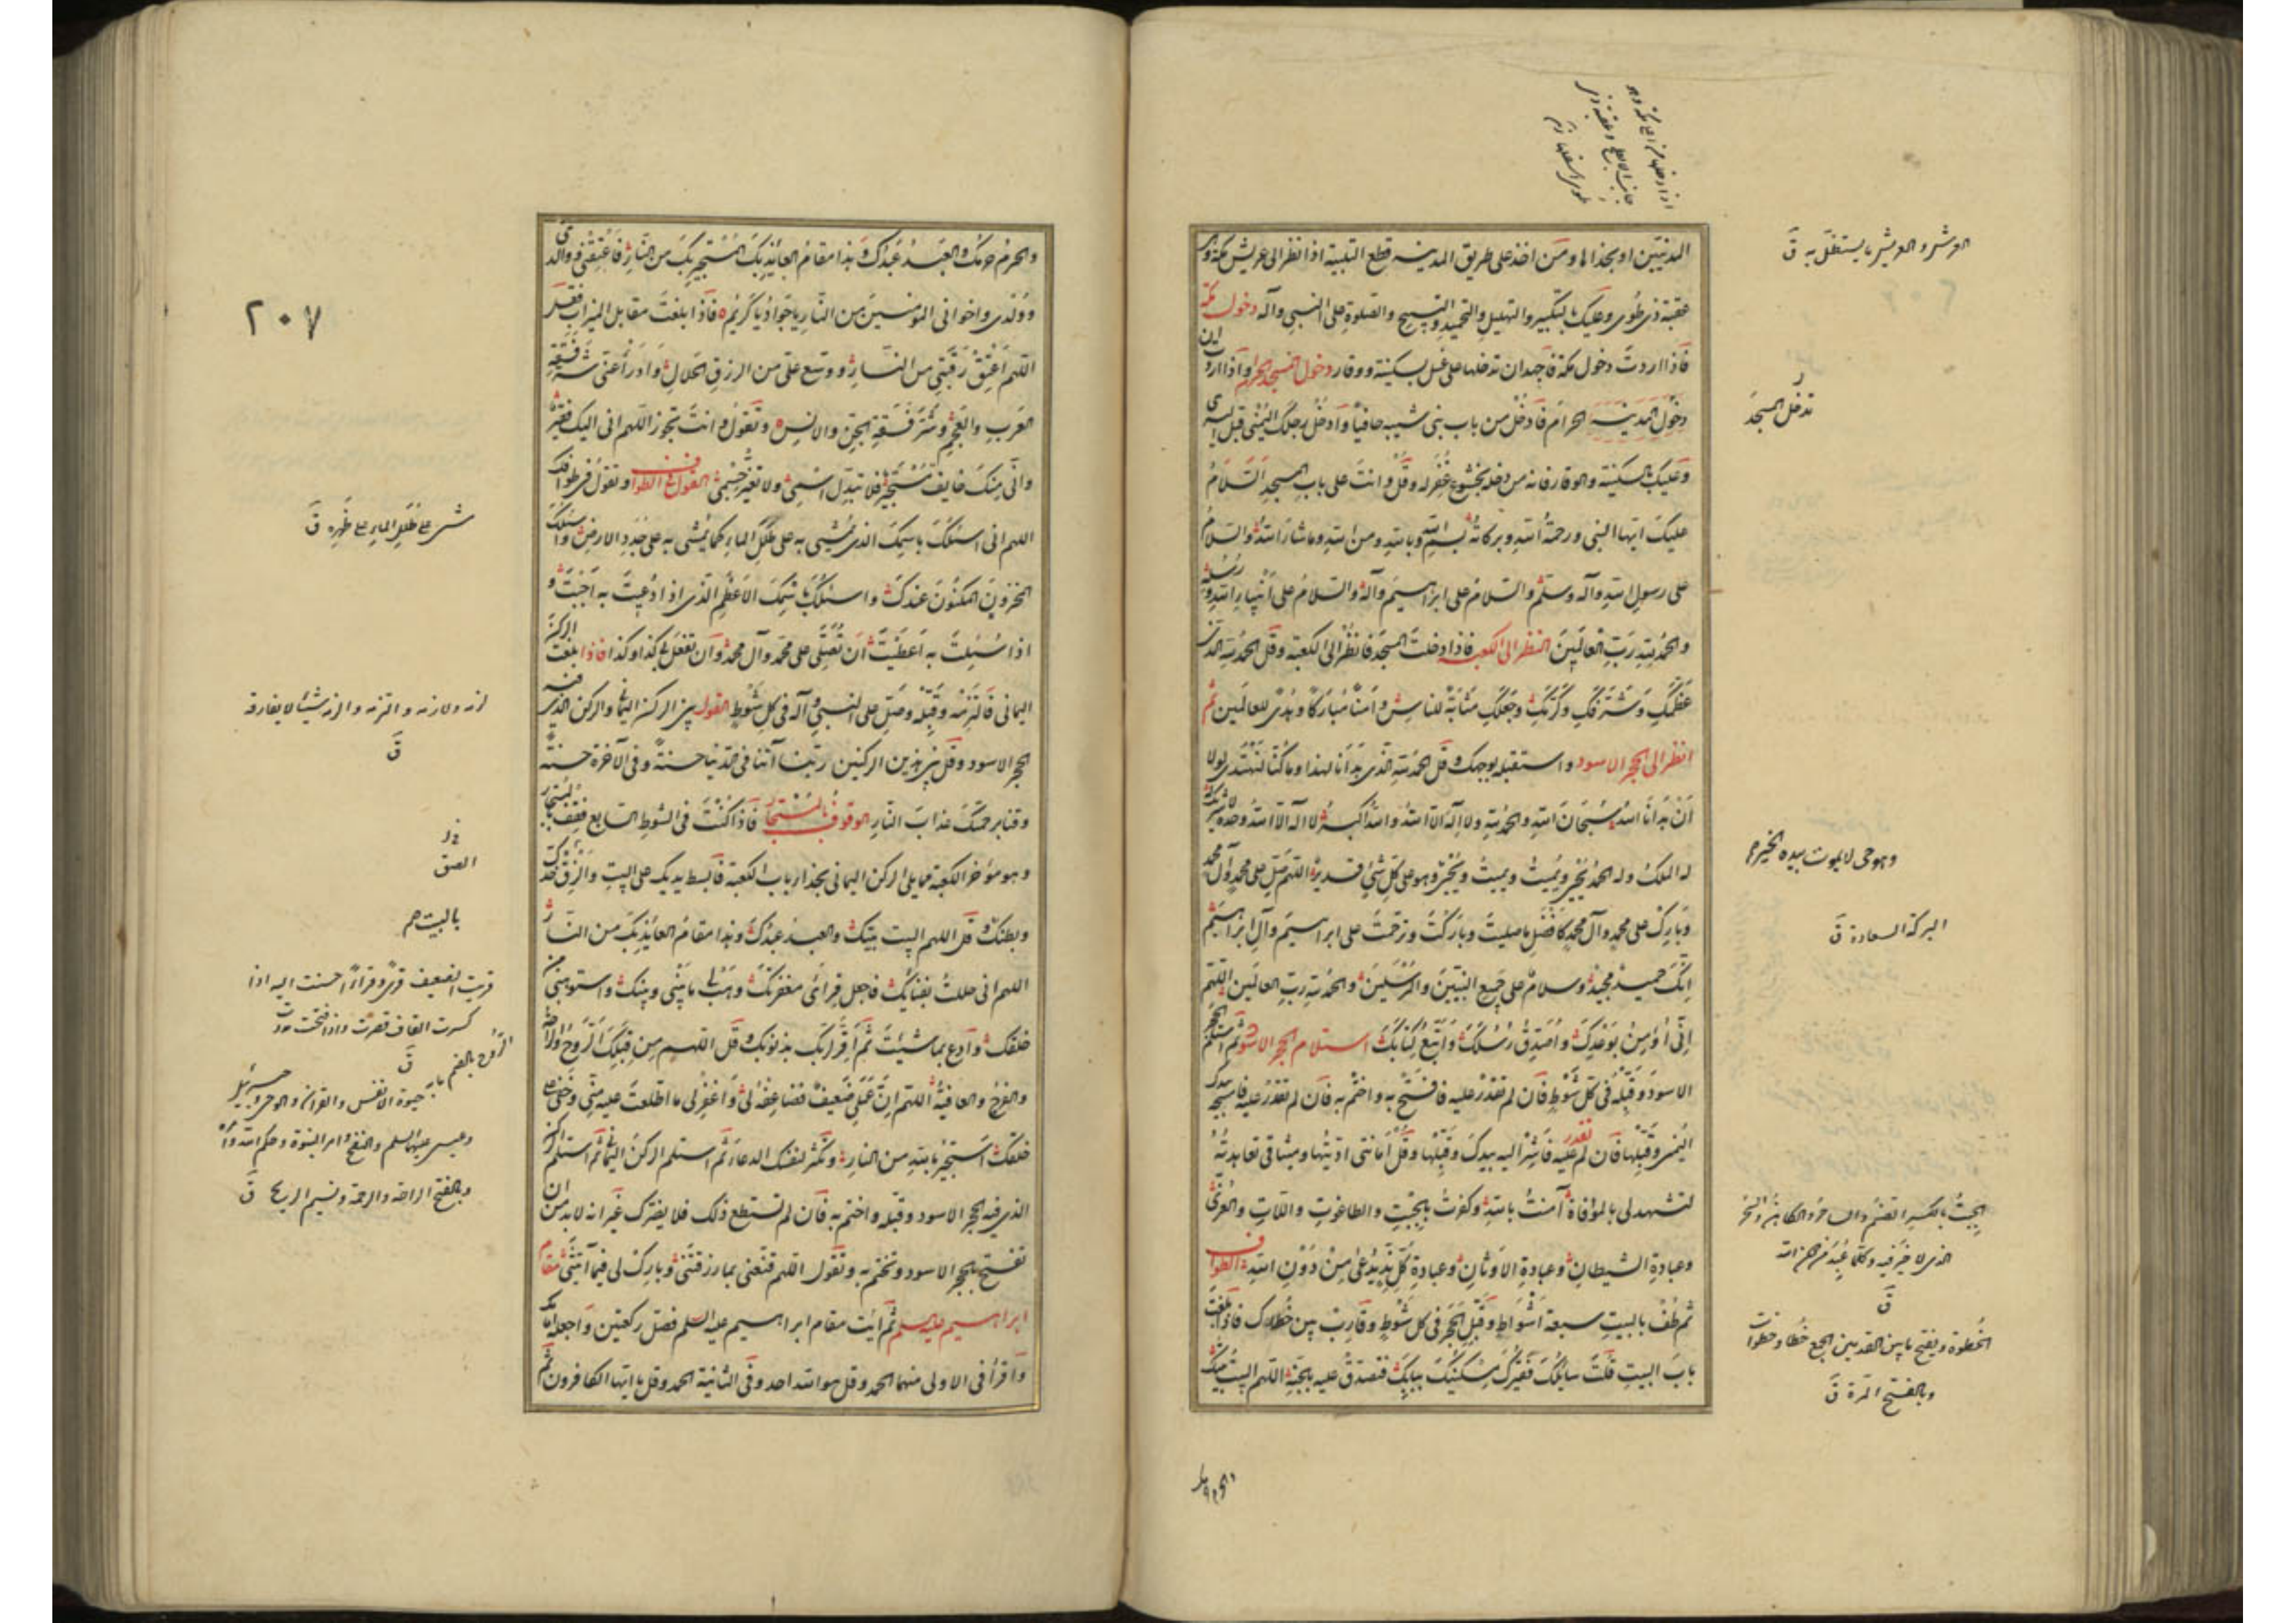 المدنيين او بحذائها ومن اخذ على طريق المدينه قطع التلبية اذا نظر الى عريش مكة وهى
عقبة ذى طوى وعليك بالتكبير والتهليل والتحميد والتسبيح والصلوة على النبى وآله دخول مكة
فاذا اردت دخول مكة فاجهد ان تدخلها على غسل بسكينة ووقار دخول المسجد الحرام واذا اردت ان
دخول المدينه الحرام فادخل من باب بنى شيبه حافيا وادخل برجلك اليمنى قبل اليسرى
وعليك بالسكينة والوقار فانه من دخله بخشوع غفر له وقل وانت على باب المسجد السلام
عليك ايها النبى ورحمة الله وبركاته بسم الله وبالله ومن الله وما شاء الله والسلام
على رسول الله وآله وسلم والسلام على ابراهيم وآله والسلام على انبياء الله ورسله
والحمد لله رب العالمين النظر الى الكعبه فاذا دخلت المسجد فانظر الى الكعبة وقل الحمد لله الذى
عظمك وشرفك وكرمك وجعلك مثابة للناس وامنا مباركا وهدى للعالمين ثم
انظر الى الحجر الاسود واستقبله بوجهك وقل الحمد لله الذى هدانا لهذا وما كنا لنهتدى لولا
ان هدانا الله سبحان الله والحمد لله ولا اله الا الله والله اكبر لا اله الا الله وحده لا شريك
له الملك وله الحمد يحيى ويميت ويميت ويحيى وهو على كل شئ قدير اللهم صل على محمد وآل محمد
وبارك على محمد وآل محمد كافضل ما صليت وباركت وترحمت على ابراهيم وآل ابراهيم
انك حميد مجيد وسلام على جميع النبيين والمرسلين والحمد لله رب العالمين اللهم
انى اومن بوعدك واصدق رسلك واتبع كتابك استلام الحجر الاسود ثم استلم الحجر
الاسود وقبله فى كل شوط فان لم تقدر عليه فافتتح به واختم به فان لم تقدر عليه فامسحه بيدك
اليمنى وقبلها فان لم تقدر عليه فاشر اليه بيدك وقبلها وقل امانتى اديتها وميثاقى تعاهدته
لتشهد لى بالموافاة آمنت بالله وكفرت بالجبت والطاغوت واللات والعزى
وعبادة الشيطان وعبادة الاوثان وعبادة كل ند يدعى من دون الله الطواف
ثم طف بالبيت سبعة اشواط وقبل الحجر فى كل شوط وقارب بين خطاك فاذا بلغت
باب البيت قلت سائلك فقيرك مسكينك ببابك فتصدق عليه بالجنة اللهم البيت بيتك
العرش والعريش ما يستظل به ق
تدخل المسجد
وهو حى لا يموت بيده الخير
البركة السعادة ق
الجبت بالكسر الصنم والساحر والكاهن والسحر
الذى لا خير فيه وكلما عبد من دون الله
ق
الخطوة ويفتح ما بين القدمين الجمع خطا وخطوات
وبالفتح المرة ق
والحرم
٢٠٧
والحرم حرمك والعبد عبدك وهذا مقام العائذ بك المستجير بك من النار فاعتقنى ووالدى
وولدى واخوانى المؤمنين من النار يا جواد يا كريم فاذا بلغت مقابل الميزاب فقل
اللهم اعتق رقبتى من النار ووسع على من الرزق الحلال وادرأ عنى شر فسقة
العرب والعجم وشر فسقة الجن والانس وتقول وانت تجوز اللهم انى اليك فقير
وانى منك خايف مستجير فلا تبدل اسمى ولا تغير جسمى القول فى الطواف وتقول فى طوافك
اللهم انى اسئلك باسمك الذى يمشى به على طلل الماء كما يمشى به على جدد الارض واسئلك باسمك
المخزون المكنون عندك واسئلك باسمك الاعظم الذى اذا دعيت به اجبت و
اذا سئلت به اعطيت ان تصلى على محمد وآل محمد وان تفعل بى كذا وكذا فاذا بلغت الركن
اليمانى فالتزمه وقبله وصل على النبى وآله فى كل شوط القول بين الركن اليمانى والركن الذى فيه
الحجر الاسود وقل بين هذين الركنين ربنا آتنا فى الدنيا حسنة وفى الآخرة حسنة
وقنا برحمتك عذاب النار الوقوف بالمستجار فاذا كنت فى الشوط السابع فقف بالمستجار
وهو مؤخر الكعبة مما يلى الركن اليمانى بحذاء باب الكعبة فابسط يديك على البيت والزق خدك
وبطنك وقل اللهم البيت بيتك والعبد عبدك وهذا مقام العائذ بك من النار
اللهم انى حللت بفنائك فاجعل قراى مغفرتك وهب لى ما بينى وبينك واستوهبنى من
خلقك وادع بما شئت ثم اقر لربك بذنوبك وقل اللهم من قبلك الروح والراحة
والفرج والعافية اللهم ان عملى ضعيف فضاعفه لى واغفر لى ما اطلعت عليه منى وخفى على
خلقك استجير بالله من النار وتكثر لنفسك الدعاء ثم استلم الركن اليمانى ثم استلم الركن
الذى فيه الحجر الاسود وقبله واختم به فان لم تستطع ذلك فلا يضرك غير انه لا بد من ان
تفتتح بالحجر الاسود وتختم به وتقول اللهم قنعنى بما رزقتنى وبارك لى فيما آتيتنى مقام
ابراهيم عليه السلم ثم ائت مقام ابراهيم عليه السلم فصل ركعتين واجعله امامك
واقرأ فى الاولى منهما الحمد وقل هو الله احد وفى الثانية الحمد وقل يا ايها الكافرون ثم
مشى على طلل الماء على ظهره ق
لزمه ولازمه والتزمه والزمه شيئا لا يفارقه
ق
الصق
بالبيت
قريت الضيف قرى وقراء احسنت اليه اذا
كسرت القاف قصرت واذا فتحت مددت
ق
الروح بالضم ما به حيوة الانفس والقرآن والوحى وجبرئيل
وعيسى عليهما السلم والنفخ وامر النبوة وحكم الله وامره
وبالفتح الراحة والرحمة ونسيم الريح ق